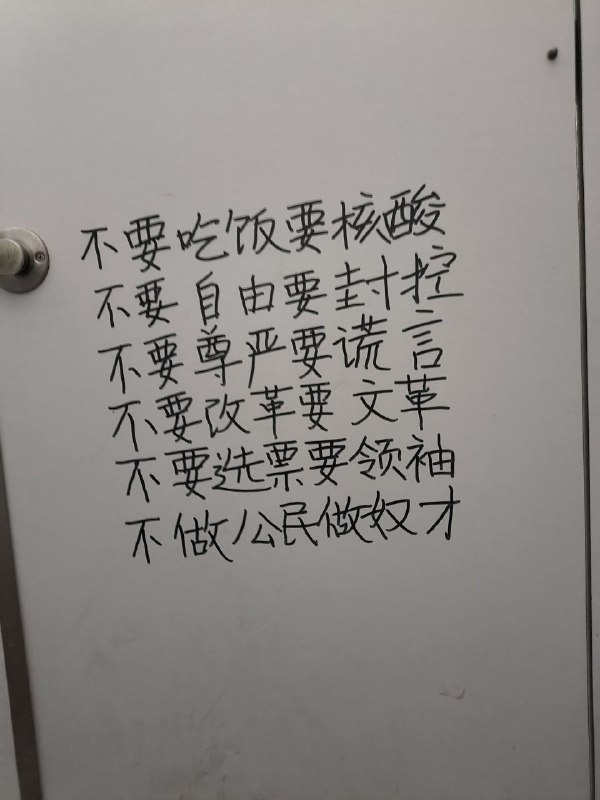 不要吃饭要核酸
不要自由要封控
不要尊严要谎言
不要改革要文革
不要选票要领袖
不做公民做奴才